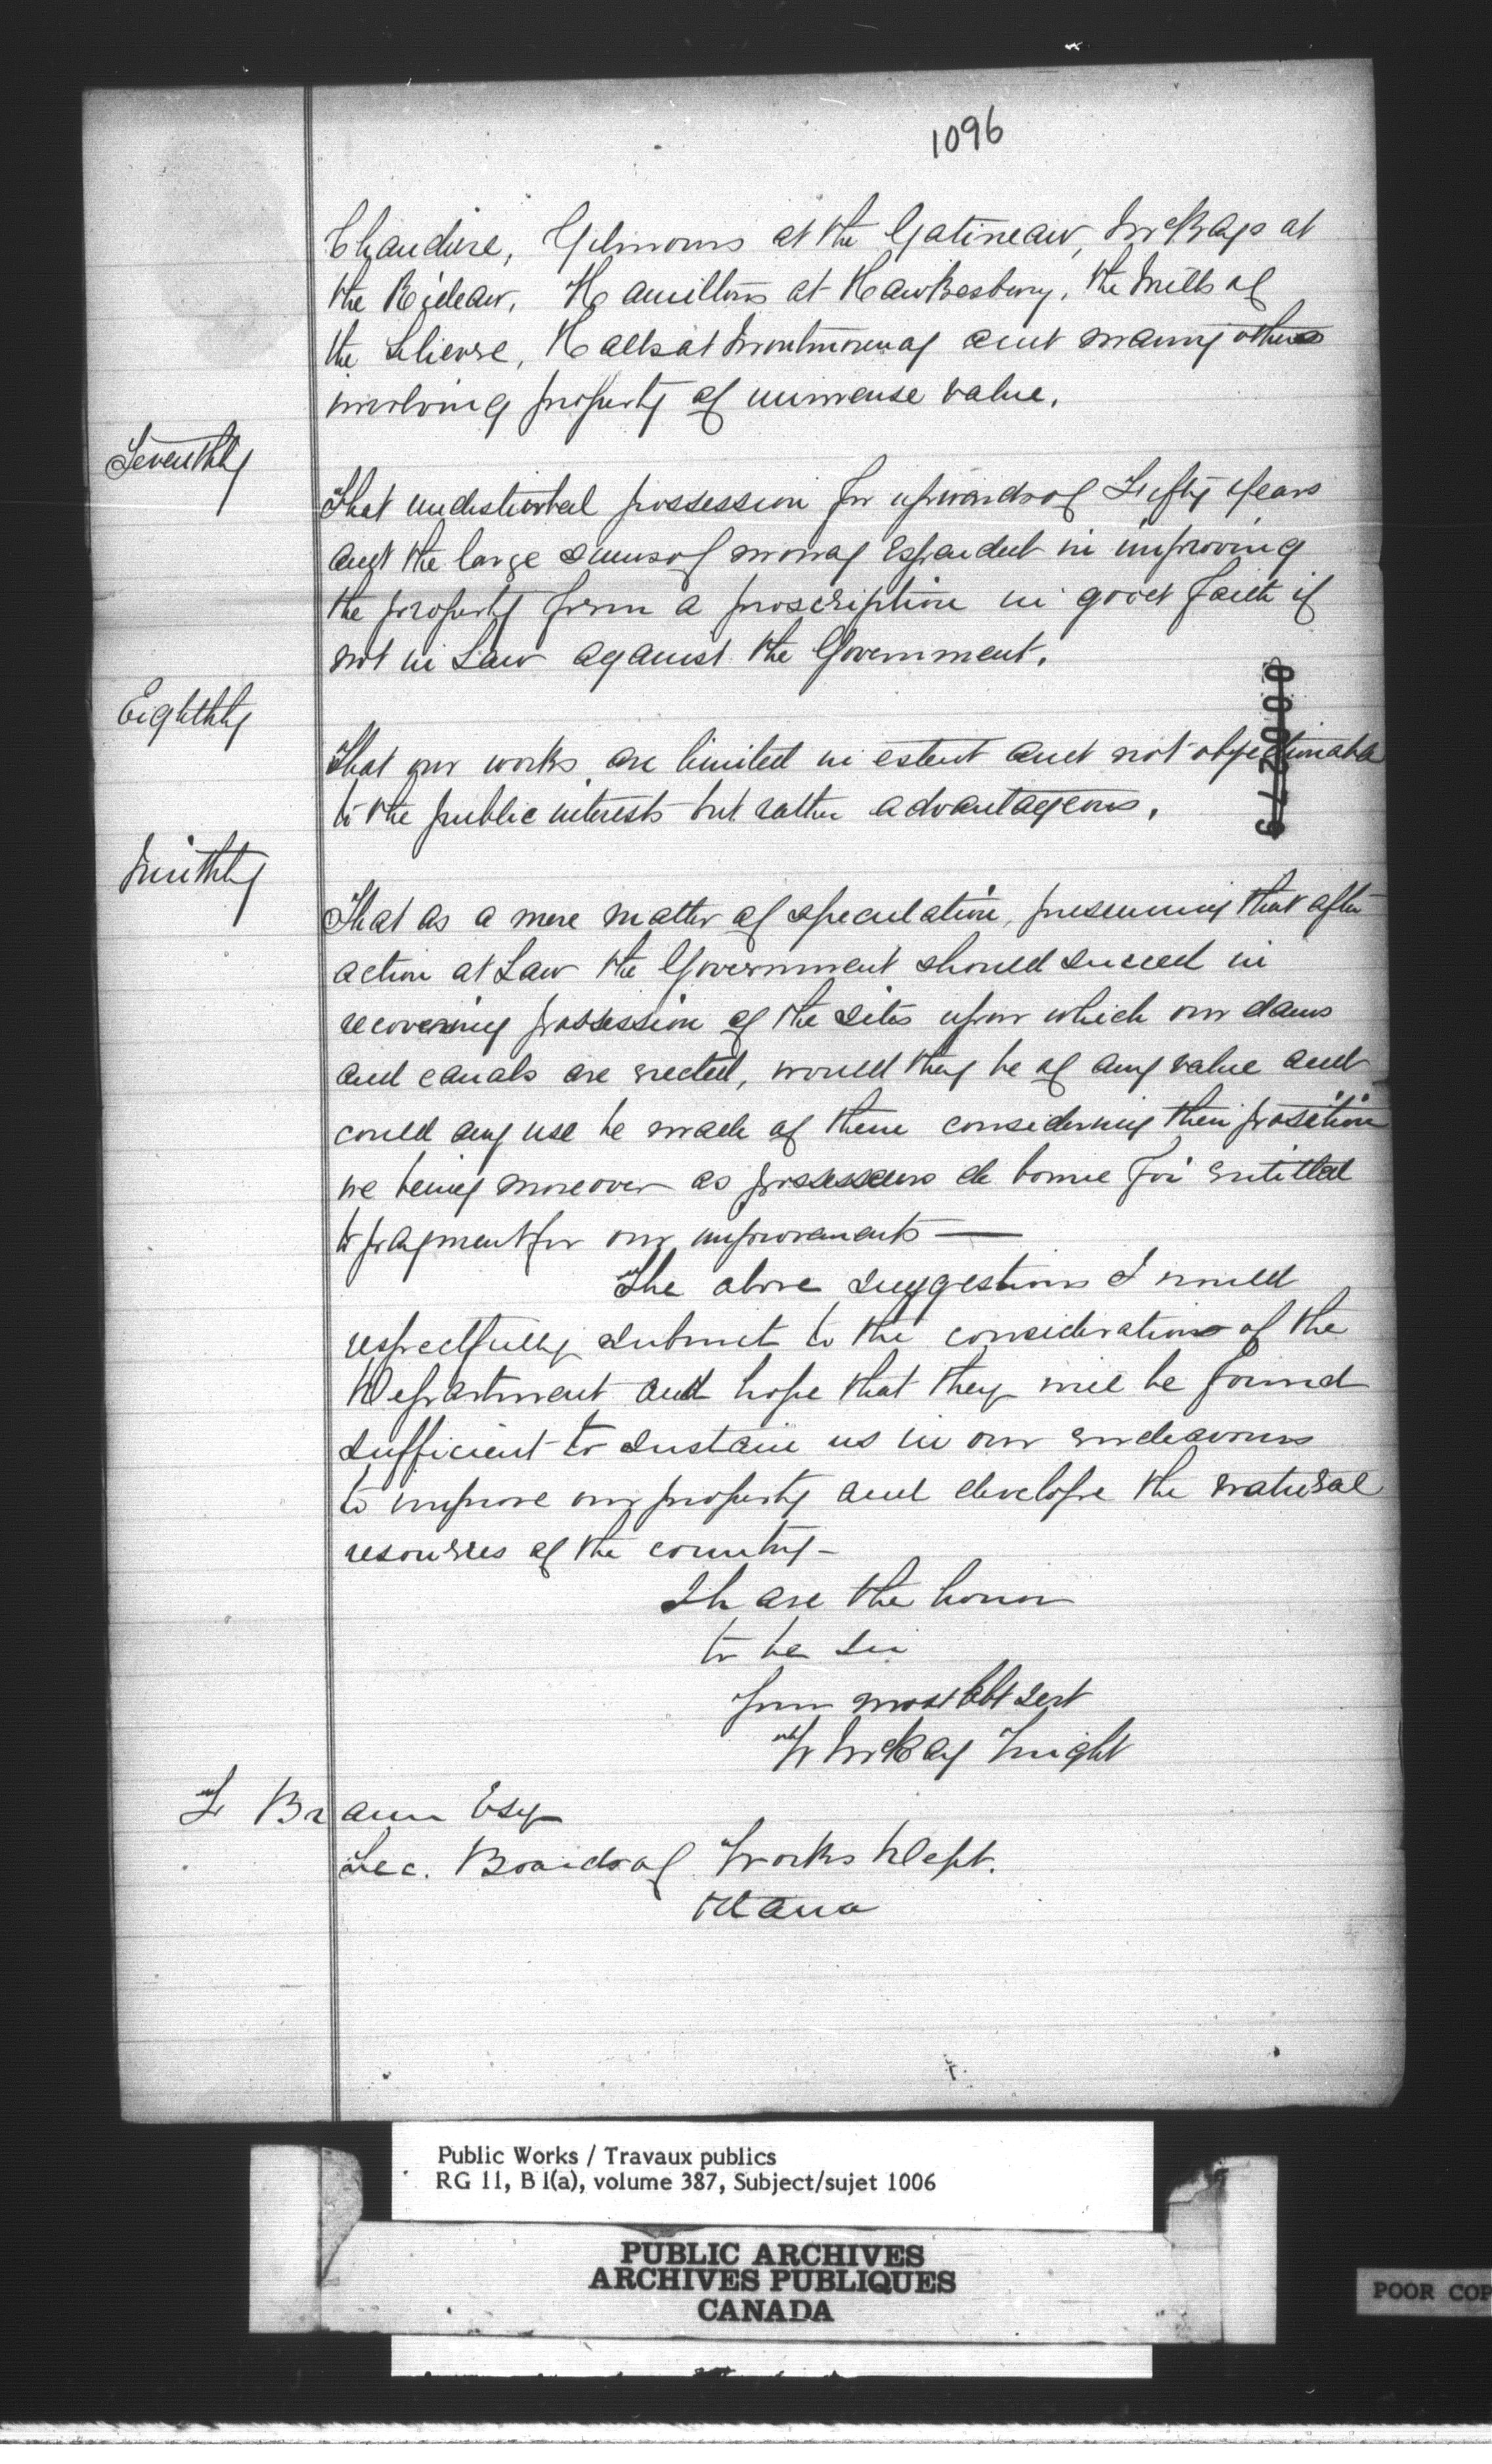 1096
Chaudiere, Gilmours at the Gatineau, McKays at
the Rideau, Hamiltons at Hawkesbury, the Mills of
the Lievre, Halls at Montmorency and many others
involving property of immense value.
Seventhly
That undisturbed possession for upwards of Fifty years
and the large sums of money expended in improving
the property form a proscription in good faith if
not in Law against the Government.
Eighthly
That our works are limited in extent and not objectionable
to the public interests but rather advantageous.
Ninthly
That as a mere matter of speculation, presuming that after
action at Law the Government should succeed in
recovering possession of the sites upon which our dams
and canals are erected, would they be of any value and
could any use be made of them considering their position
we being moreover as possesseurs de bonne foi entitled
to payment for our improvements —
The above suggestions I would
respectfully submit to the considerations of the
Department and hope that they will be found
sufficient to sustain us in our endeavours
to improve our property and develope the natural
resources of the country -
I have the honor
to be Sir
Your most Obt Sert
W McKay Wright
F Braun Esq
Sec. Boards of Works Dept.
Ottawa
Public Works / Travaux publics
RG 11, B 1(a), volume 387, Subject/sujet 1006
PUBLIC ARCHIVES
ARCHIVES PUBLIQUES
CANADA
POOR COP